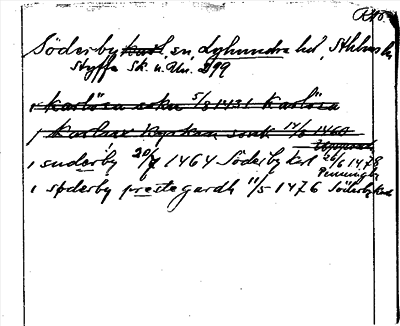 Söderby karl, sn, Lyhundra hd, Sthlms län
Styffe Sk. u. Un. 299
i Karlösa sokn 5/8 1431 Karlösa
i Karlne kyrkan sonk 14/3 1460
Uppsala
i suderby 20/7 1464 Söderby krl 26/6 1478
Penningby
i søderby prestegardh 11/5 1476 Söderby karl